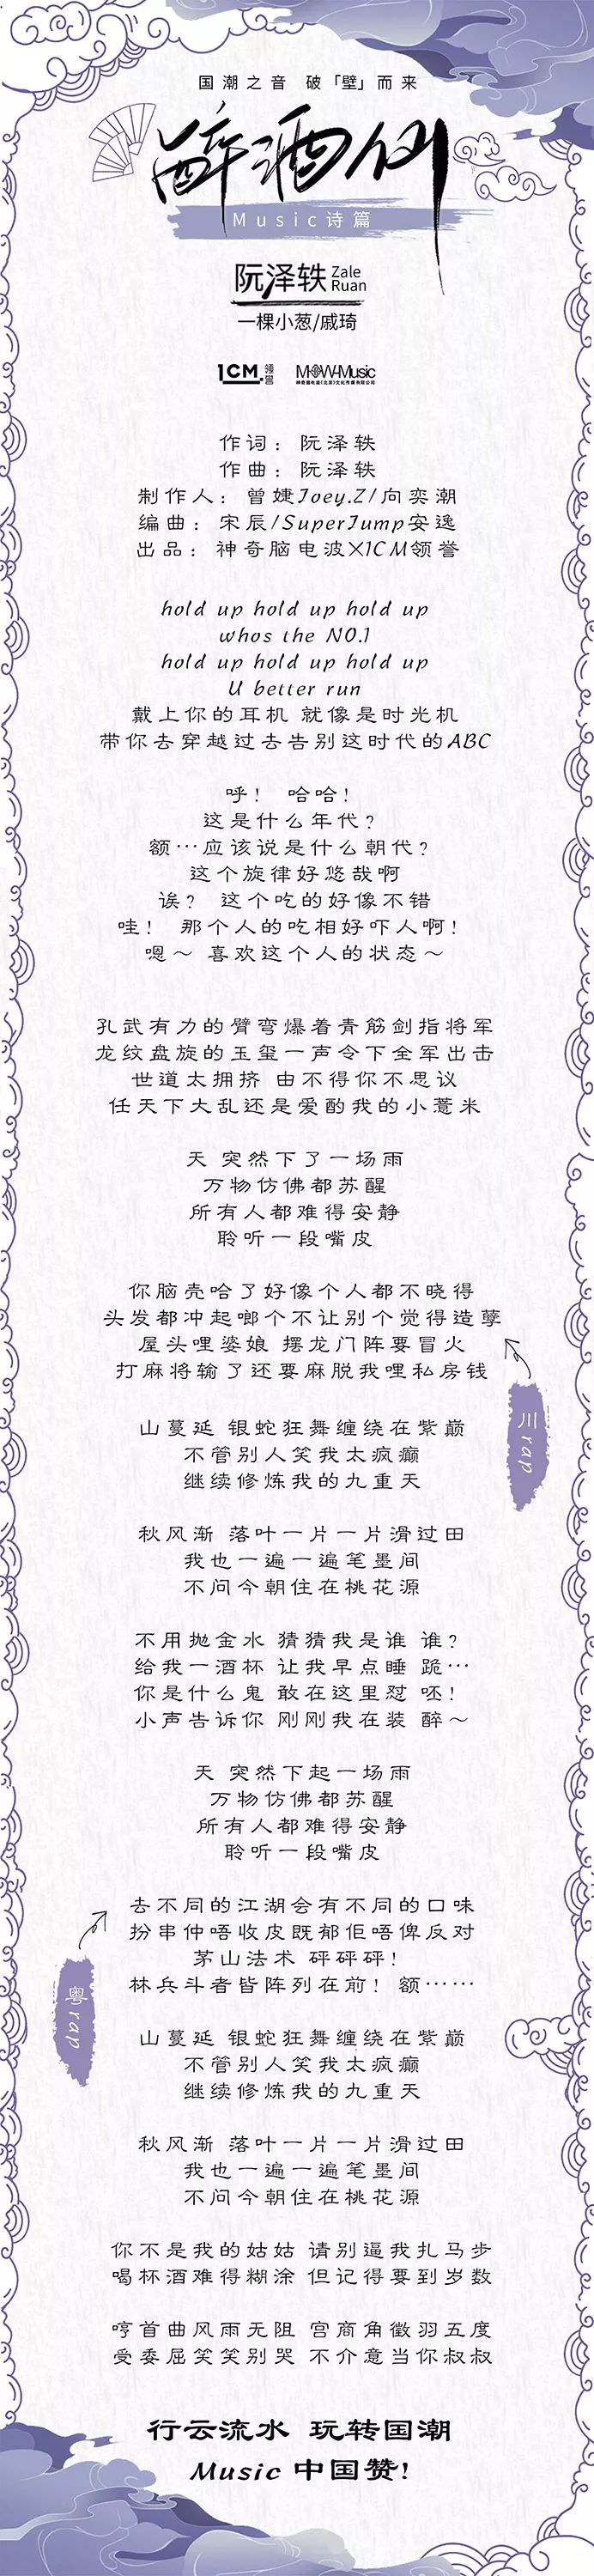 国潮之音 破「壁」而来
醉酒仙
Music诗篇
阮泽轶 Zale Ruan
一棵小葱/戚琦
1CM.领誉 MOW4Music
作词：阮泽轶
作曲：阮泽轶
制作人：曾婕Joey.Z/向奕潮
编曲：宋辰/SuperJump安逸
出品：神奇脑电波X1CM领誉
hold up hold up hold up
whos the NO.1
hold up hold up hold up
U better run
戴上你的耳机 就像是时光机
带你去穿越过去告别这时代的ABC
呼！ 哈哈！
这是什么年代？
额…应该说是什么朝代？
这个旋律好悠哉啊
诶？ 这个吃的好像不错
哇！ 那个人的吃相好吓人啊！
嗯～ 喜欢这个人的状态～
孔武有力的臂弯爆着青筋剑指将军
龙纹盘旋的玉玺一声令下全军出击
世道太拥挤 由不得你不思议
任天下大乱还是爱酌我的小薏米
天 突然下了一场雨
万物仿佛都苏醒
所有人都难得安静
聆听一段嘴皮
你脑壳哈了好像个人都不晓得
头发都冲起啷个不让别个觉得造孽
屋头哩婆娘 摆龙门阵要冒火
打麻将输了还要麻脱我哩私房钱
川rap
山蔓延 银蛇狂舞缠绕在紫巅
不管别人笑我太疯癫
继续修炼我的九重天
秋风渐 落叶一片一片滑过田
我也一遍一遍笔墨间
不问今朝住在桃花源
不用抛金水 猜猜我是谁 谁？
给我一酒杯 让我早点睡 跪…
你是什么鬼 敢在这里怼 呸！
小声告诉你 刚刚我在装 醉～
天 突然下起一场雨
万物仿佛都苏醒
所有人都难得安静
聆听一段嘴皮
去不同的江湖会有不同的口味
扮串仲唔收皮既郁佢唔俾反对
茅山法术 砰砰砰！
林兵斗者皆阵列在前！ 额……
粤rap
山蔓延 银蛇狂舞缠绕在紫巅
不管别人笑我太疯癫
继续修炼我的九重天
秋风渐 落叶一片一片滑过田
我也一遍一遍笔墨间
不问今朝住在桃花源
你不是我的姑姑 请别逼我扎马步
喝杯酒难得糊涂 但记得要到岁数
哼首曲风雨无阻 宫商角徵羽五度
受委屈笑笑别哭 不介意当你叔叔
行云流水 玩转国潮
Music 中国赞！